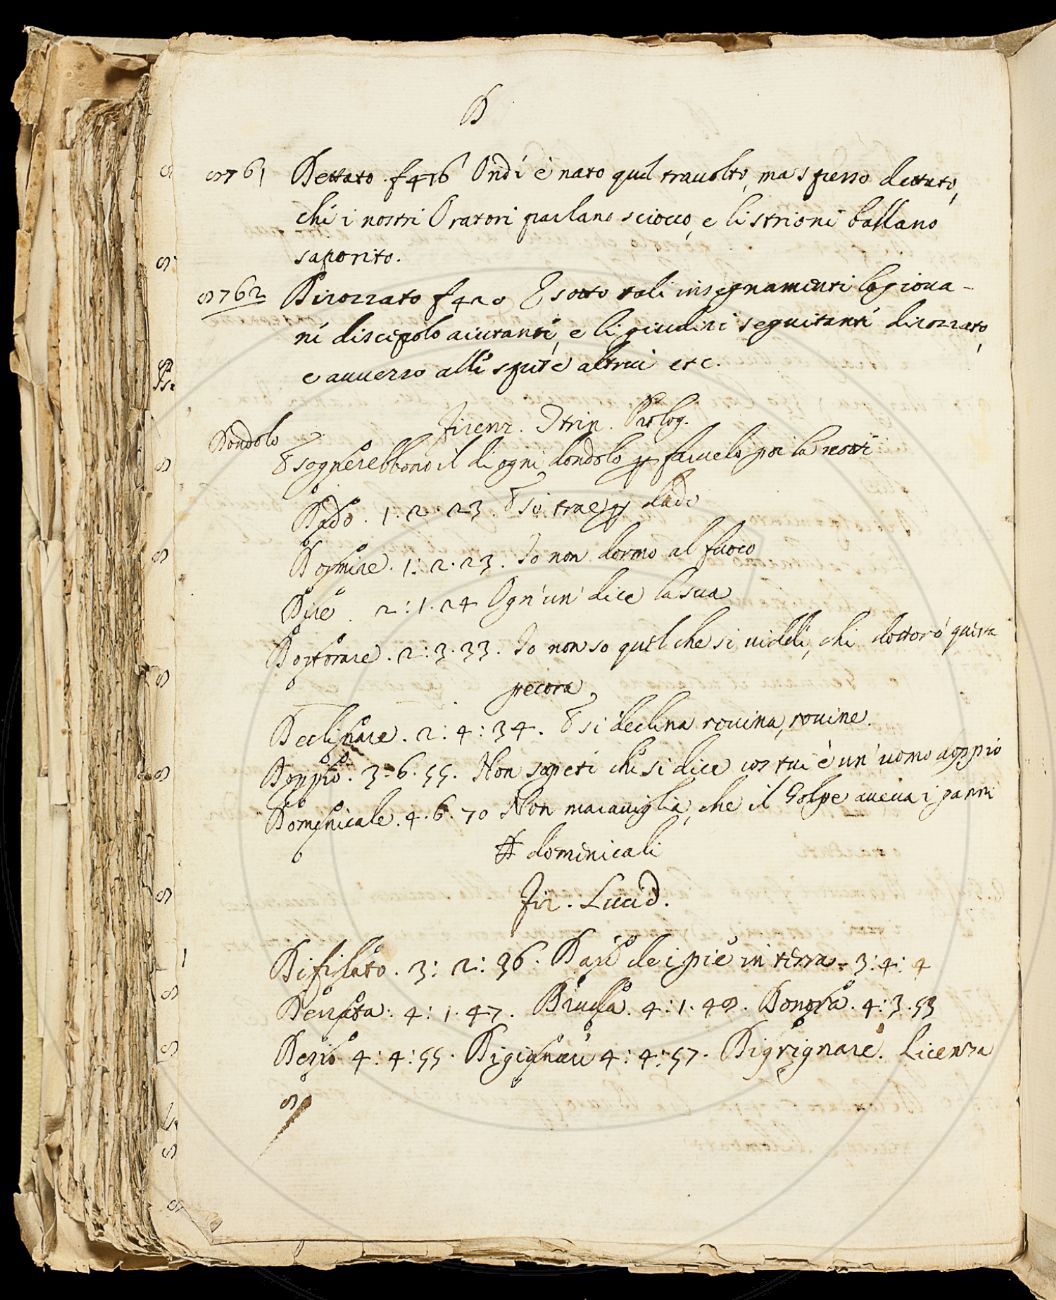 D
8761 Dettato. f 476 Ondi è nato quel travolto, ma spesso dettato,
chi i nostri Oratori parlano sciocco, e li strioni ballano
saporito.
8762 Dirozzato f 420 E sotto tali insegnamenti la giova-
ni discepolo aiutanti, e li giudizi seguitanti dirozzato,
e avvezzo alli altrui etc.
Firenz. Trin. Prolog.
Dondolo E sognerebbono il dì ogni dondolo per favvelo poi la notti
Dado. 1. 2. 23 E si trae dado
Dormire. 1: 2. 23. Io non dormo al fuoco
Dire 2: 1. 24 Ogn'un' dice la sua
Dottorare. 2: 3. 33. Io non so quel che si viddi, chi dottorò questa
pecora
Declinare. 2: 4: 34. E si declina rovina, rovine.
Doppio. 3. 6. 55. Non sapeti chi si dice costui è un' uomo doppio
Dominicale. 4. 6. 70 Non maraviglia, che il Golpe aveva i panni
# dominicali
Fir. Lucid.
Difilato. 3: 2: 36. Dare de i pie in terra. 3: 4: 4
Derrata. 4: 1. 47. 4: 1. 48. Donora. 4: 3. 53
4: 4: 55. 4: 4: 57. Digrignare. Licenza